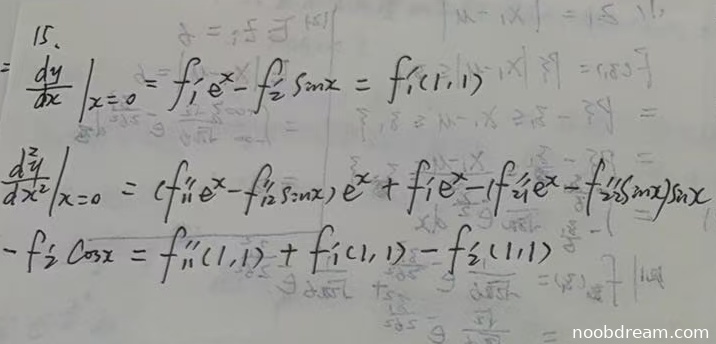 15.
= dy/dx |x=0 = f₁'eˣ - f₂' sinx = f₁'(1,1)
d²y/dx² |x=0 = (f₁₁''eˣ - f₁₂'' sinx) eˣ + f₁'eˣ - (f₂₁''eˣ - f₂₂'' sinx) sinx
- f₂' cosx = f₁₁''(1,1) + f₁'(1,1) - f₂'(1,1)
noobdream.com